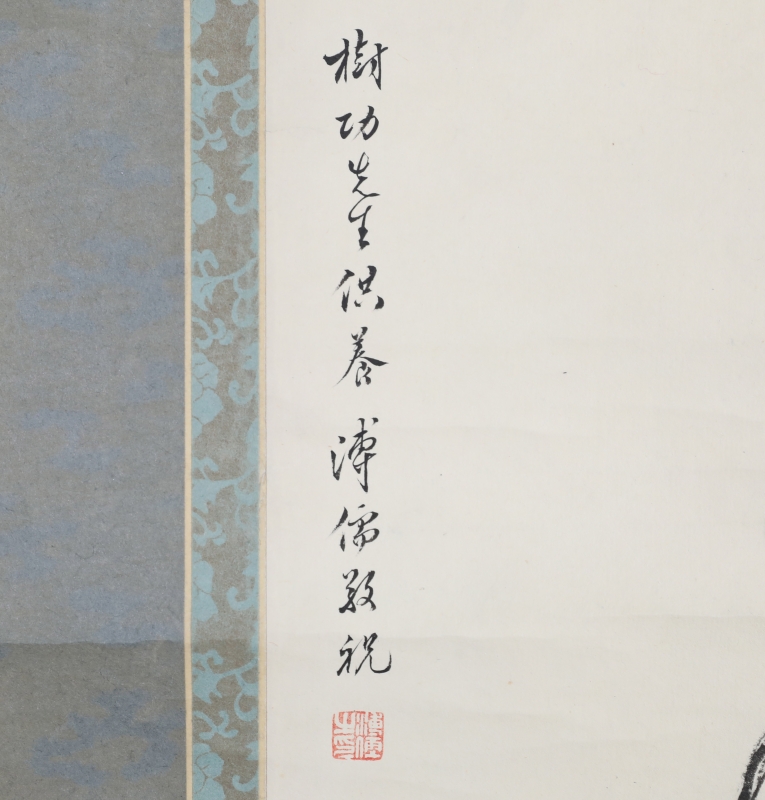 樹功先生供養溥儒敬祝
溥儒之印